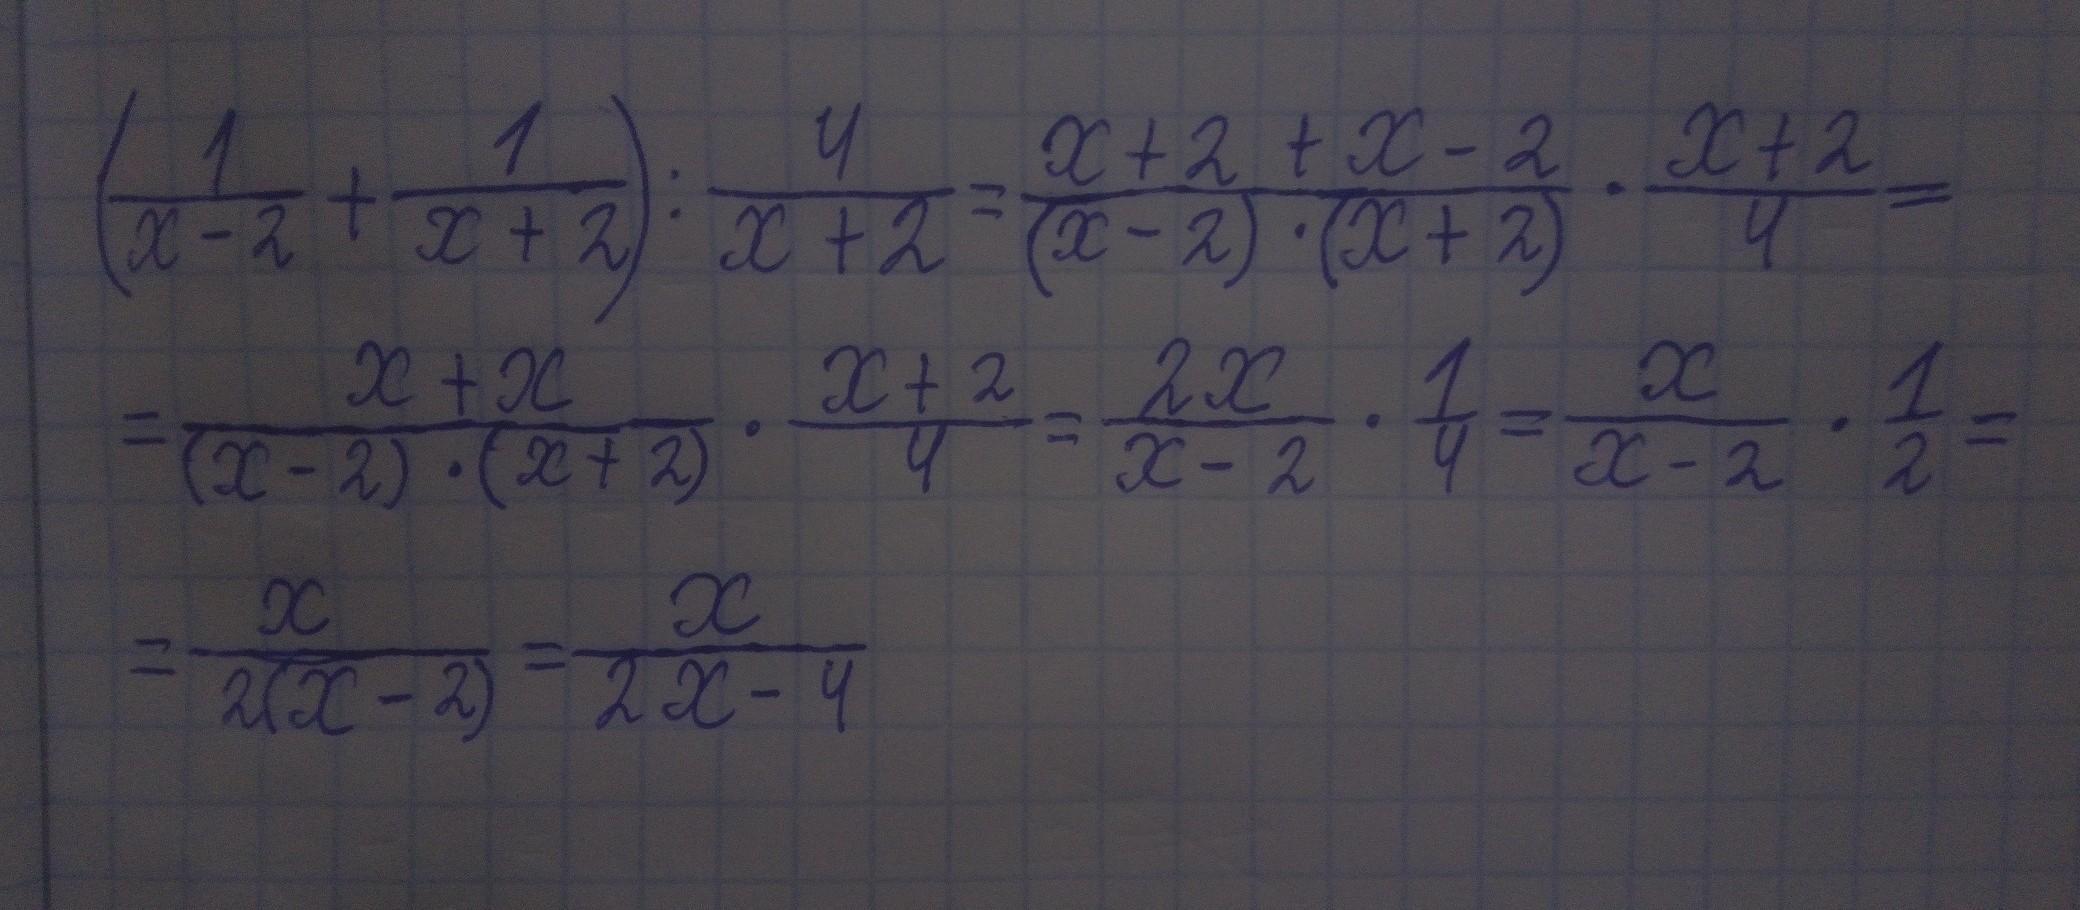 (1/(x-2) + 1/(x+2)) : 4/(x+2) = (x+2+x-2)/((x-2)·(x+2)) · (x+2)/4 =
= (x+x)/((x-2)·(x+2)) · (x+2)/4 = 2x/(x-2) · 1/4 = x/(x-2) · 1/2 =
= x/(2(x-2)) = x/(2x-4)